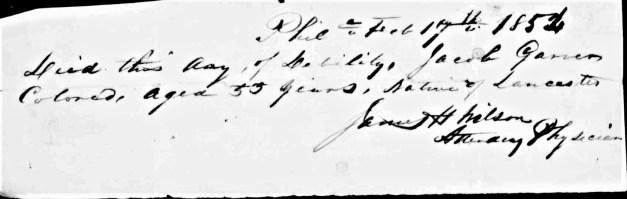 Phila Feb 17th 1854
Died this day, of Debility, Jacob
Colored, aged 55 years, Native of Lancaster
James H Wilson
Attending Physician